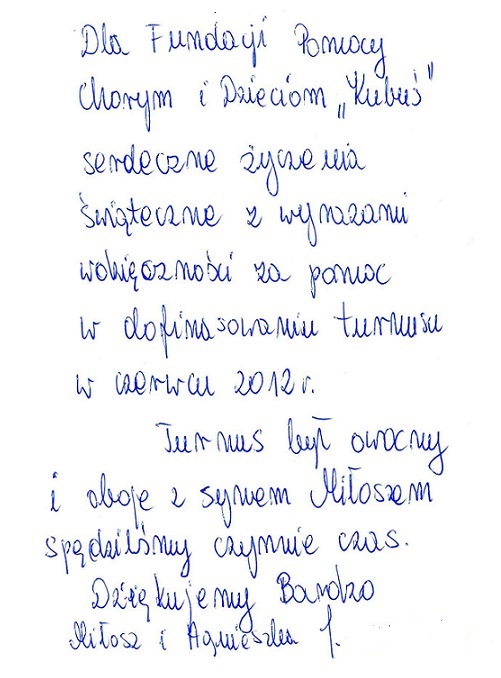 Dla Fundacji Pomocy
Chorym i Dzieciom „Kubuś”
serdeczne życzenia
świąteczne z wyrazami
wdzięczności za pomoc
w dofinasowaniu turnusu
w czerwcu 2012 r.
Turnus był owocny
i oboje z synem Miłoszem
spędziliśmy czynnie czas.
Dziękujemy Bardzo
Miłosz i Agnieszka J.